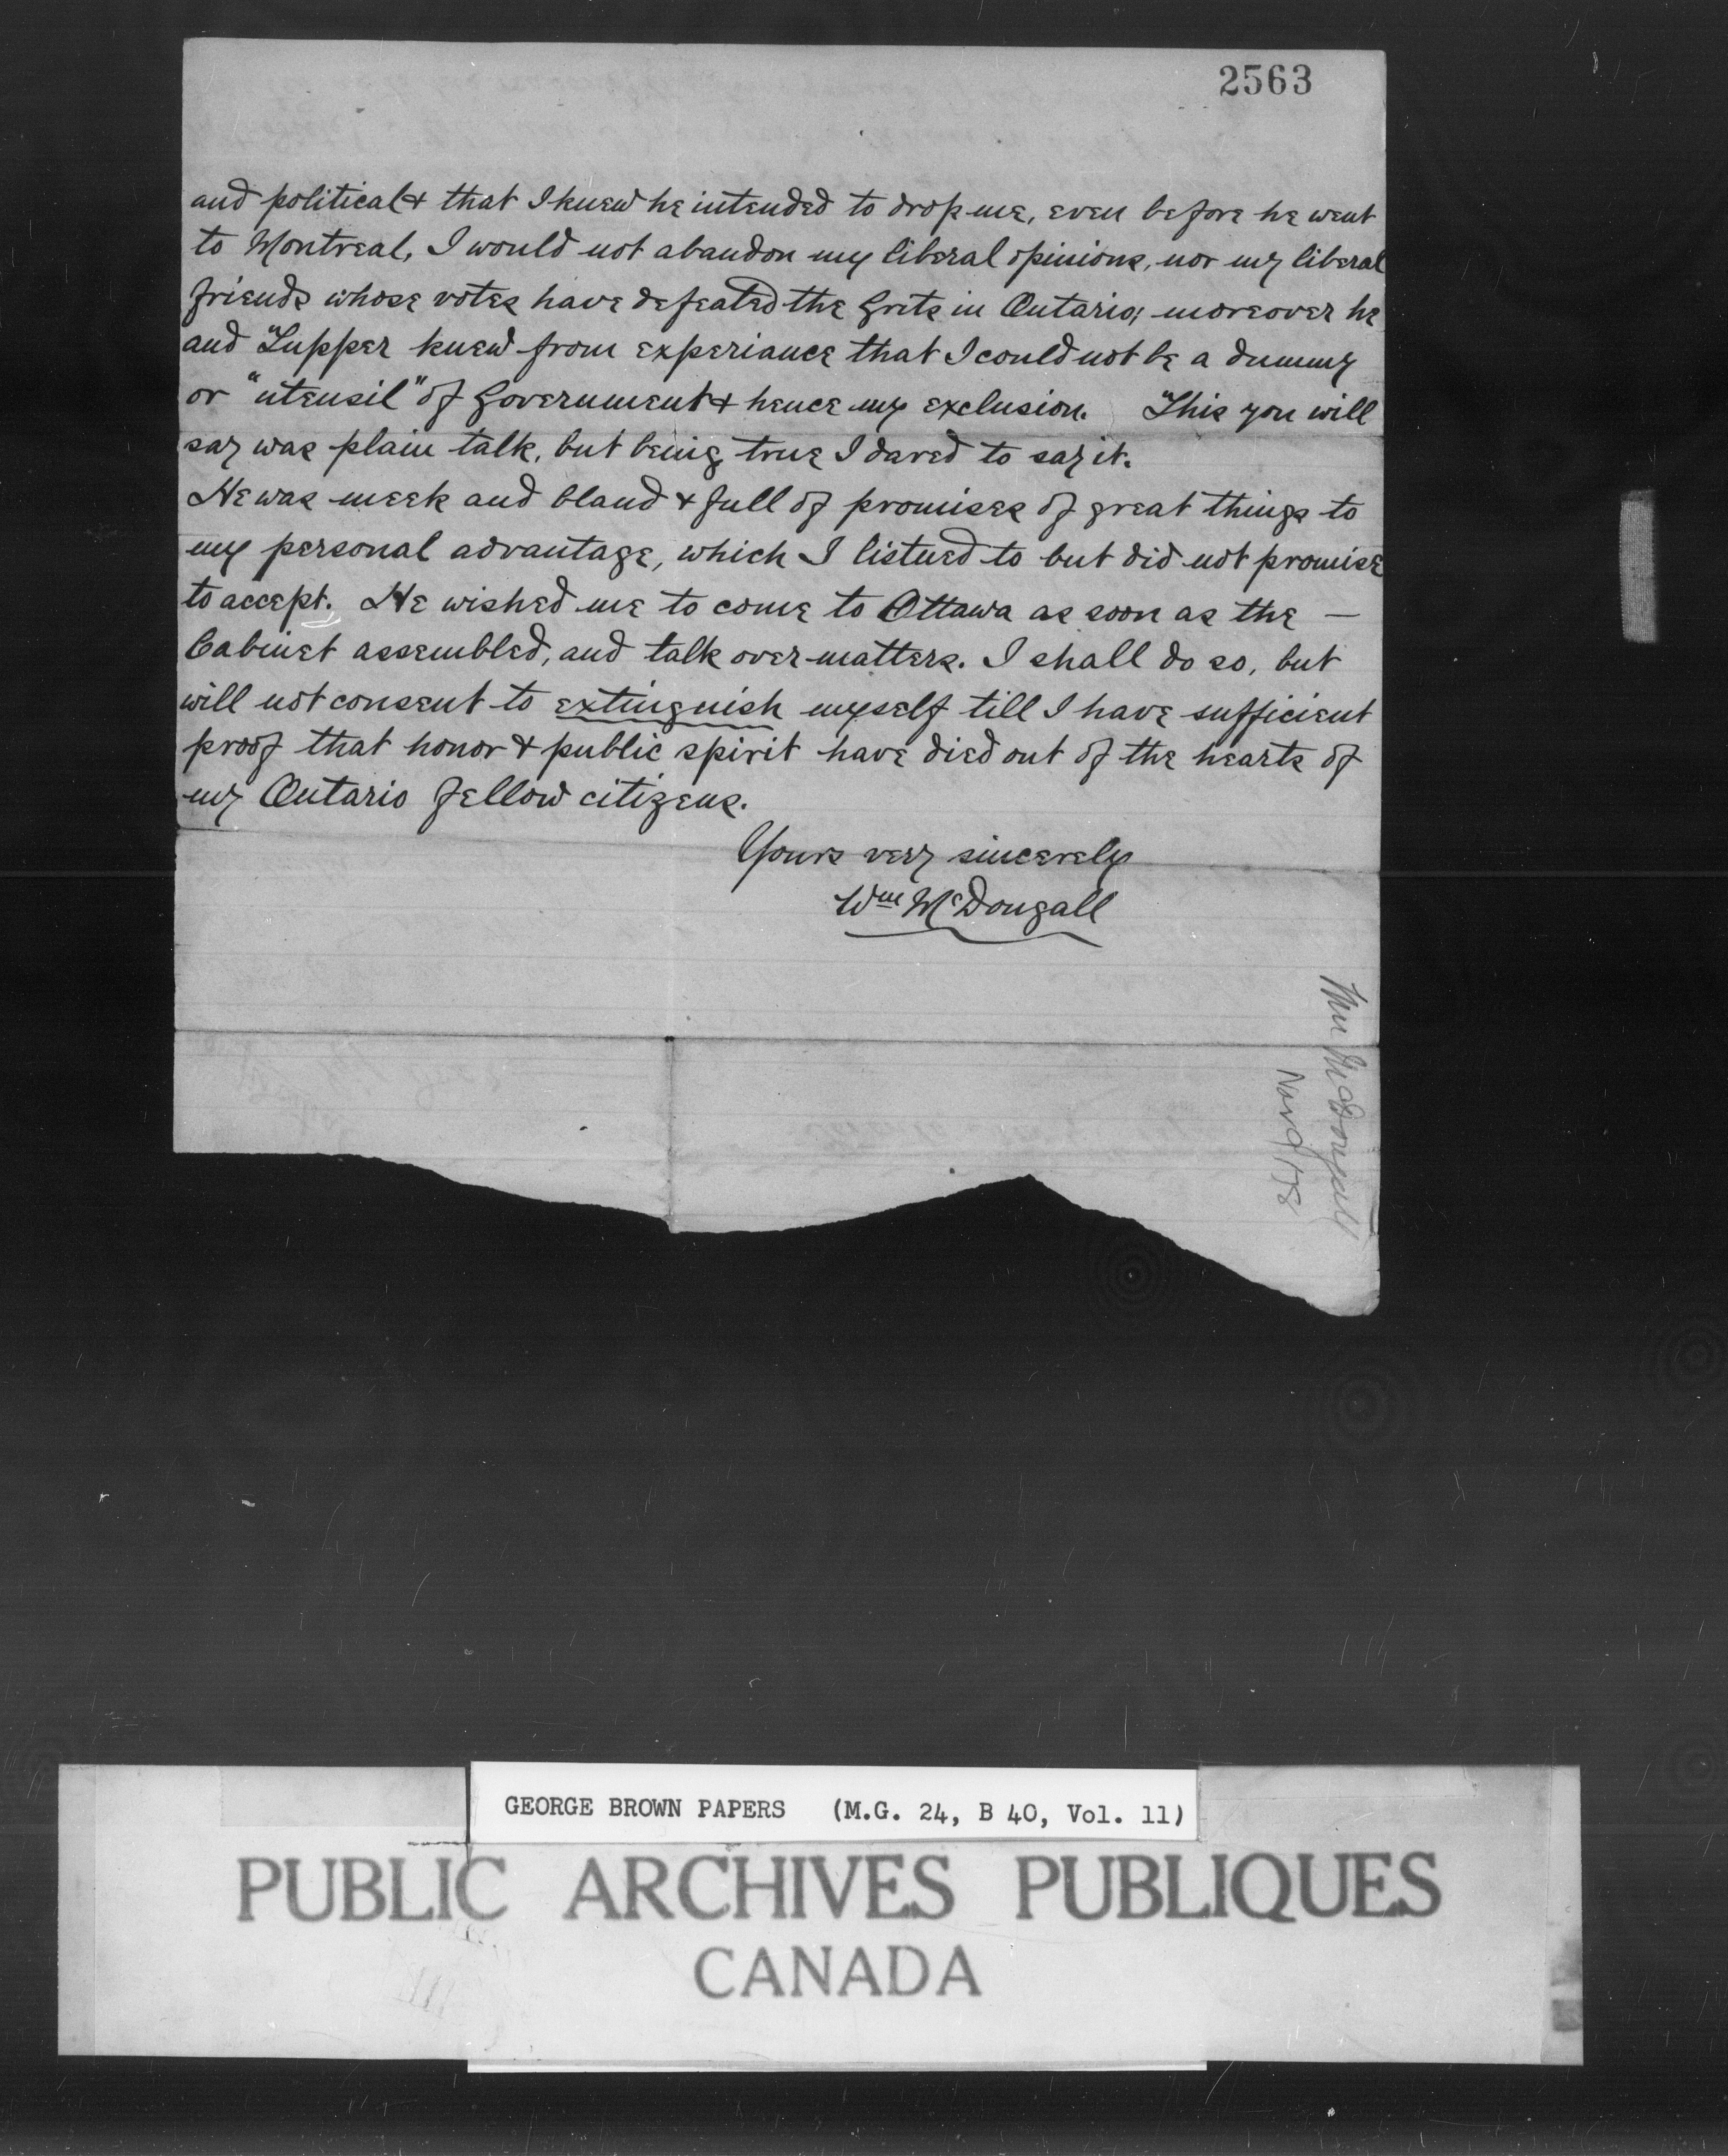 2563
and political & that I knew he intended to drop me, even before he went
to Montreal, I would not abandon my liberal opinions, nor my liberal
friends whose votes have defeated the Grits in Ontario; moreover he
and Tupper knew from experiance that I could not be a dummy
or "utensil" of Government & hence my exclusion. This you will
say was plain talk, but being true I dared to say it.
He was meek and bland & full of promises of great things to
my personal advantage, which I listned to but did not promise
to accept. He wished me to come to Ottawa as soon as the —
Cabinet assembled, and talk over matters. I shall do so, but
will not consent to extinguish myself till I have sufficient
proof that honor & public spirit have died out of the hearts of
my Ontario fellow citizens.
Yours very sincerely
Wm McDougall
Wm McDougall
GEORGE BROWN PAPERS (M.G. 24, B 40, Vol. 11)
PUBLIC ARCHIVES PUBLIQUES
CANADA